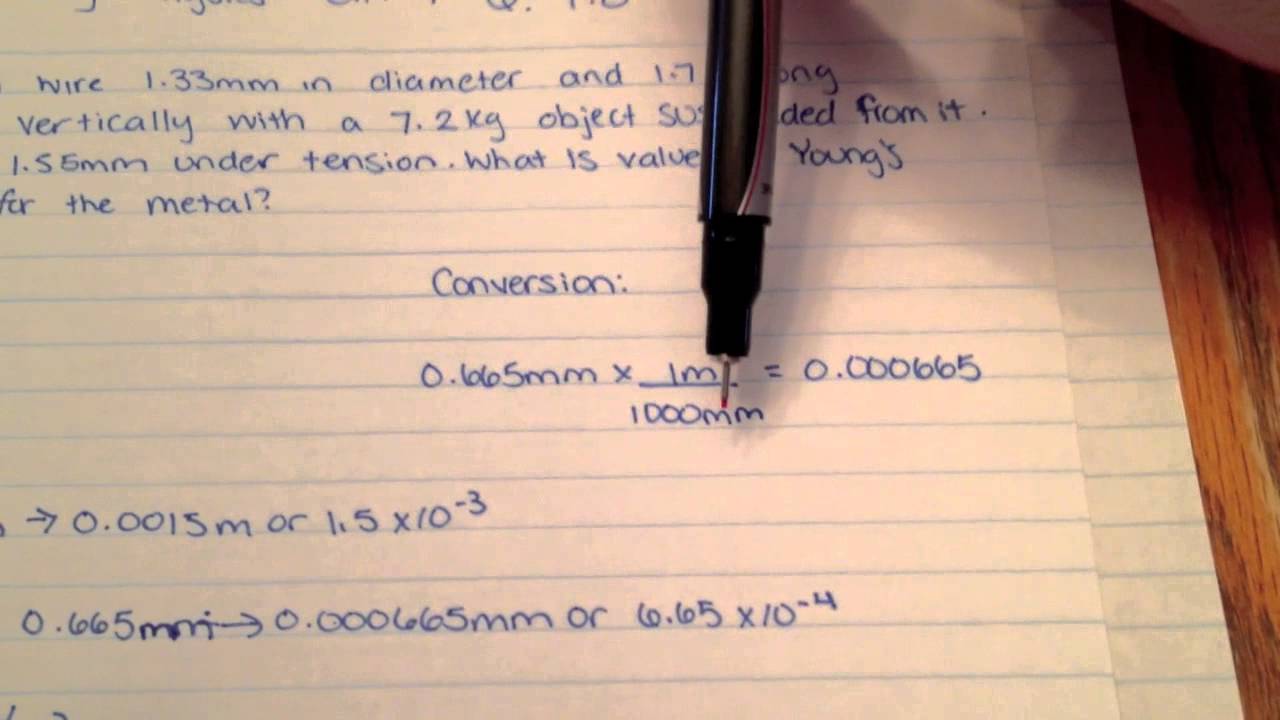 wire 1.33mm in diameter and 1.7
vertically with a 7.2kg object from it.
1.55mm under tension. What is value Young's
for the metal?
Conversion:
0.665mm × 1m = 0.000665
1000mm
→ 0.0015m or 1.5 ×10⁻³
0.665mm → 0.000665mm or 6.65 ×10⁻⁴